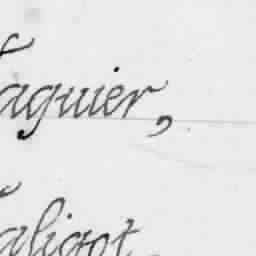 aguier,
aligot